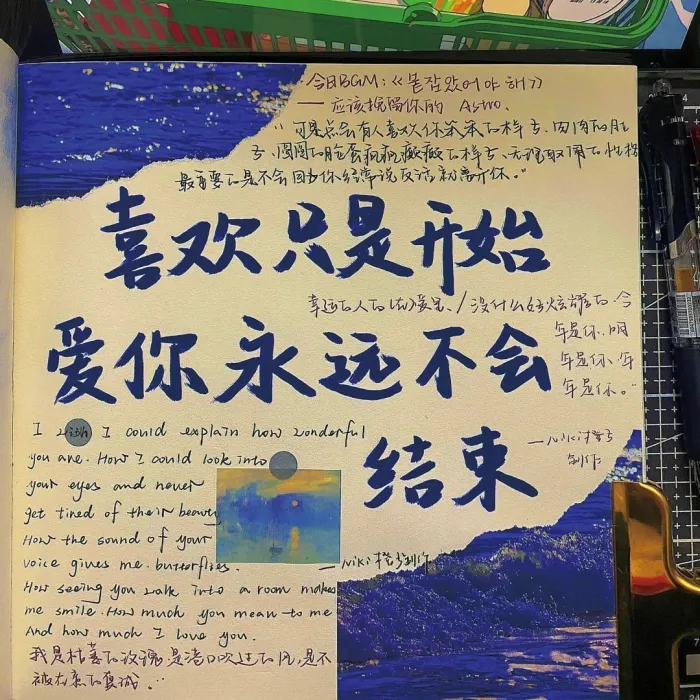 今日BGM:《붙잡았어야 해》
——应该挽留你的 Astro.
"可是总会有人喜欢你笨笨的样子、肉肉的肚
子、圆圆的脸蛋疯疯癫癫的样子、无理取闹的性格
最重要的是不会因为你经常说反话就离开你。"
喜欢只是开始
幸运的人的 爱是、/没什么好炫耀的、今
年是你、明
年是你、年
年是你。"
爱你永远不会
——Niki橙子
创作
结束
I wish I could explain how wonderful
you are. How I could look into
your eyes and never
get tired of their beauty
How the sound of your
voice gives me butterflies.
——Niki橙子创作
How seeing you walk into a room makes
me smile. How much you mean to me
And how much I love you.
我是枯萎的玫瑰 是港口吹过的风,是不
被在意的真诚。"